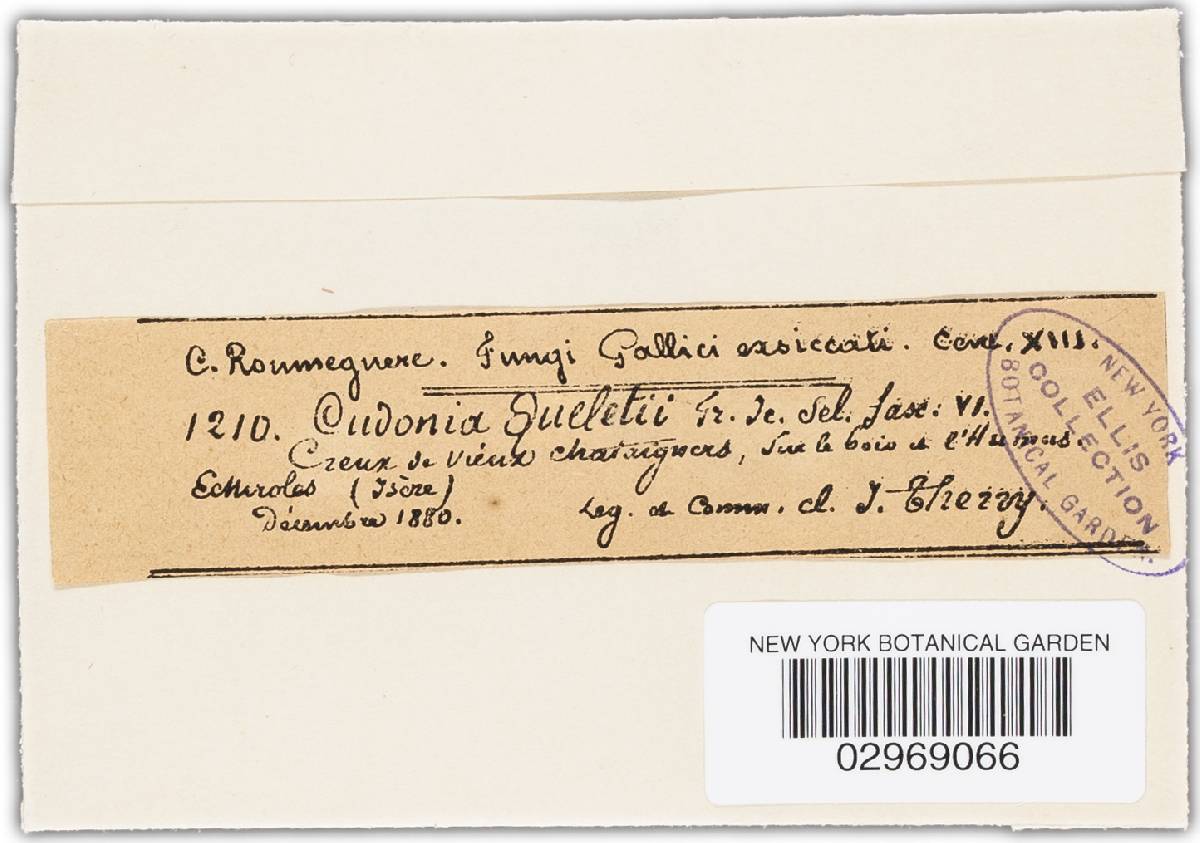 C. Roumeguere. Fungi Gallici exsiccati. Cent. XIII.
1210. Cudonia Queletii Fr. Ic. Sel. fasc. VI.
Creux de vieux chataigners, sur le bois et l'Humus.
Echiroles (Isère)
Décembre 1880.
Leg. et Comm. cl. J. Therry.
NEW YORK
ELLIS
COLLECTION
BOTANICAL GARDEN.
NEW YORK BOTANICAL GARDEN
02969066